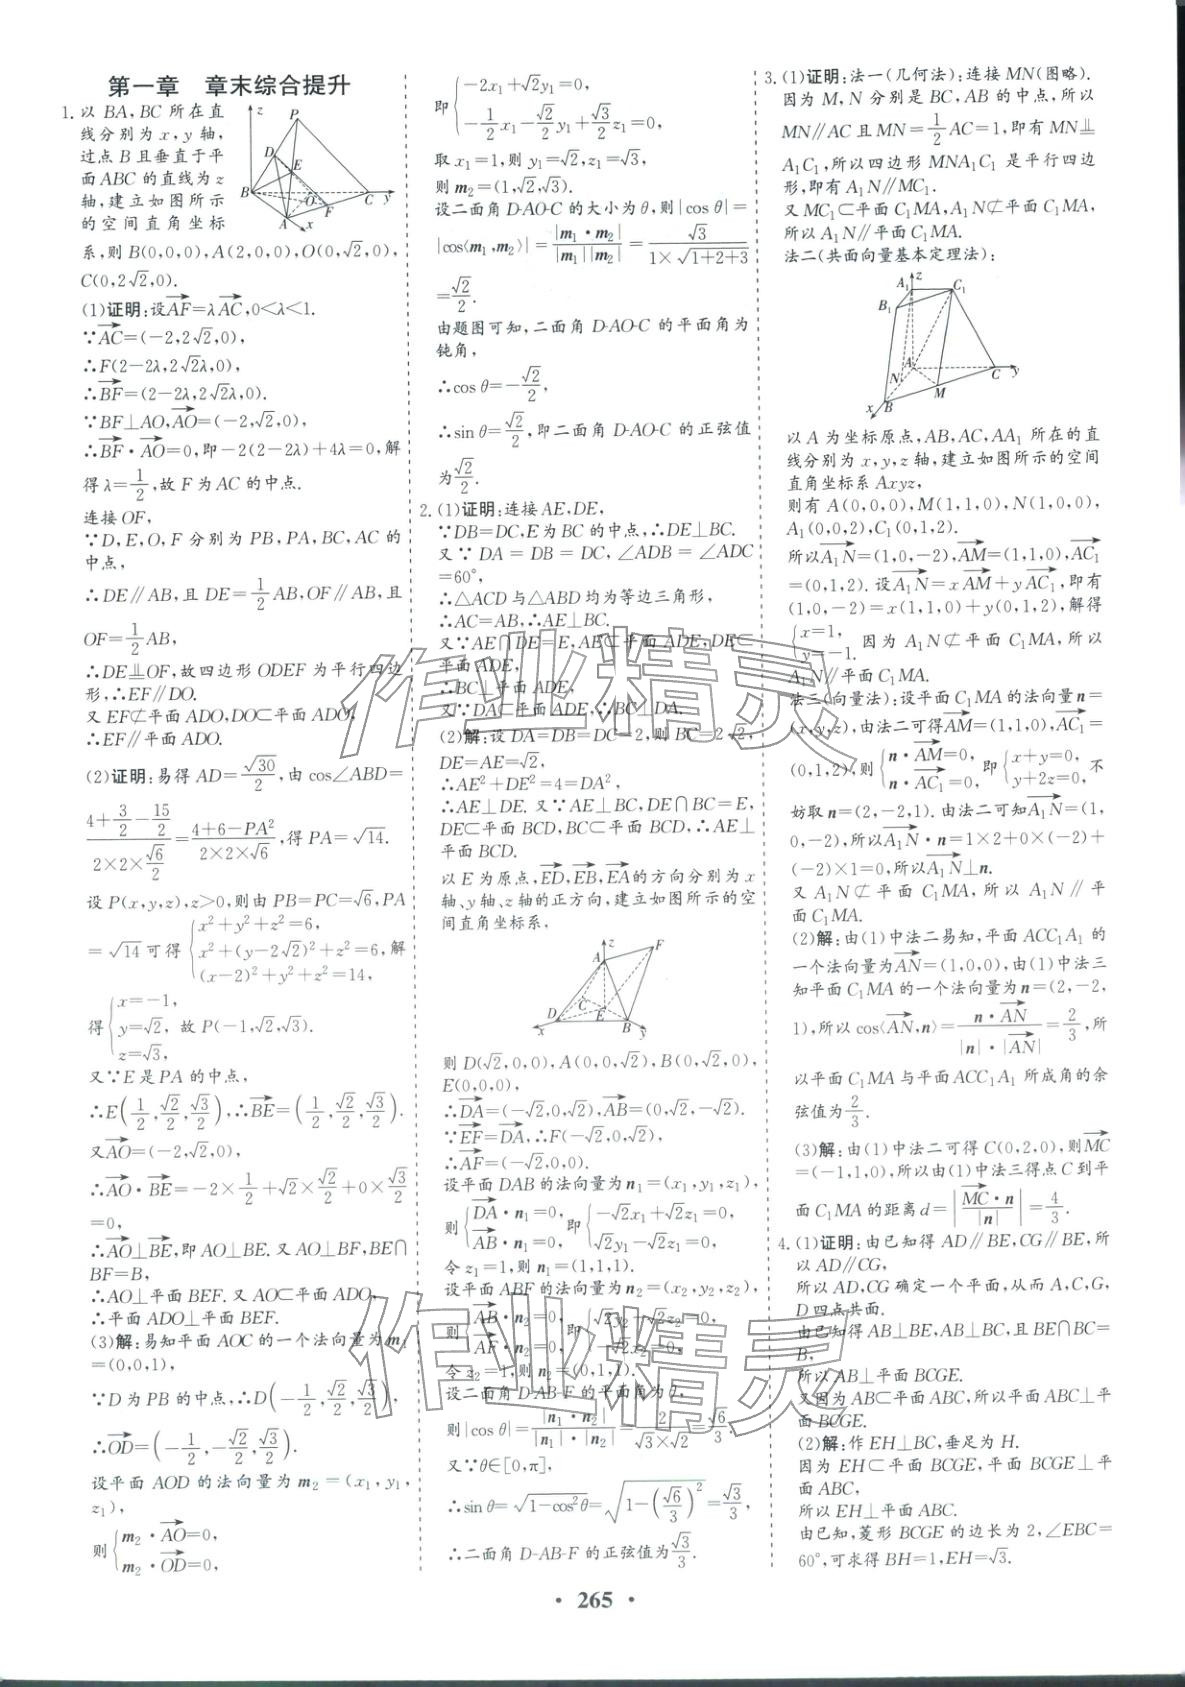 第一章　章末综合提升
1. 以 BA,BC 所在直
线分别为 x,y 轴,
过点 B 且垂直于平
面 ABC 的直线为 z
轴,建立如图所示
的空间直角坐标
系,则 B(0,0,0),A(2,0,0),O(0,√2,0),
C(0,2√2,0).
(1)证明:设AF=λAC,0<λ<1.
∵AC=(-2,2√2,0),
∴F(2-2λ,2√2λ,0),
∴BF=(2-2λ,2√2λ,0).
∵BF⊥AO,AO=(-2,√2,0),
∴BF·AO=0,即-2(2-2λ)+4λ=0,解
得λ=1/2,故 F 为 AC 的中点.
连接 OF,
∵D,E,O,F 分别为 PB,PA,BC,AC 的
中点,
∴DE∥AB,且 DE=1/2AB,OF∥AB,且
OF=1/2AB,
∴DE⫫OF,故四边形 ODEF 为平行四边
形,∴EF∥DO.
又 EF⊄平面 ADO,DO⊂平面 ADO,
∴EF∥平面 ADO.
(2)证明:易得 AD=√30/2,由 cos∠ABD=
(4+3/2-15/2)/(2×2×√6/2)=(4+6-PA²)/(2×2×√6),得 PA=√14.
设 P(x,y,z),z>0,则由 PB=PC=√6,PA
=√14 可得{x²+y²+z²=6, x²+(y-2√2)²+z²=6, (x-2)²+y²+z²=14,解
得{x=-1, y=√2, z=√3, 故 P(-1,√2,√3).
又∵E 是 PA 的中点,
∴E(1/2,√2/2,√3/2),∴BE=(1/2,√2/2,√3/2).
又AO=(-2,√2,0),
∴AO·BE=-2×1/2+√2×√2/2+0×√3/2
=0,
∴AO⊥BE,即 AO⊥BE.又 AO⊥BF,BE∩
BF=B,
∴AO⊥平面 BEF.又 AO⊂平面 ADO,
∴平面 ADO⊥平面 BEF.
(3)解:易知平面 AOC 的一个法向量为 m₁
=(0,0,1),
∵D 为 PB 的中点,∴D(-1/2,√2/2,√3/2),
∴OD=(-1/2,-√2/2,√3/2).
设平面 AOD 的法向量为 m₂=(x₁,y₁,
z₁),
则{m₂·AO=0, m₂·OD=0,
即{-2x₁+√2y₁=0, -1/2x₁-√2/2y₁+√3/2z₁=0,
取 x₁=1,则 y₁=√2,z₁=√3,
则 m₂=(1,√2,√3).
设二面角 D-AO-C 的大小为 θ,则|cos θ|=
|cos⟨m₁,m₂⟩|=|m₁·m₂|/(|m₁||m₂|)=√3/(1×√(1+2+3))
=√2/2.
由题图可知,二面角 D-AO-C 的平面角为
钝角,
∴cos θ=-√2/2,
∴sin θ=√2/2,即二面角 D-AO-C 的正弦值
为√2/2.
2. (1)证明:连接 AE,DE,
∵DB=DC,E 为 BC 的中点,∴DE⊥BC.
又∵DA=DB=DC,∠ADB=∠ADC
=60°,
∴△ACD 与△ABD 均为等边三角形,
∴AC=AB,∴AE⊥BC.
又∵AE∩DE=E,AE⊂平面 ADE,DE⊂
平面 ADE,
∴BC⊥平面 ADE,
又∵DA⊂平面 ADE,∴BC⊥DA.
(2)解:设 DA=DB=DC=2,则 BC=2√2,
DE=AE=√2,
∴AE²+DE²=4=DA²,
∴AE⊥DE.又∵AE⊥BC,DE∩BC=E,
DE⊂平面 BCD,BC⊂平面 BCD,∴AE⊥
平面 BCD.
以 E 为原点,ED,EB,EA的方向分别为 x
轴、y 轴、z 轴的正方向,建立如图所示的空
间直角坐标系,
则 D(√2,0,0),A(0,0,√2),B(0,√2,0),
E(0,0,0),
∴DA=(-√2,0,√2),AB=(0,√2,-√2).
∵EF=DA,∴F(-√2,0,√2),
∴AF=(-√2,0,0).
设平面 DAB 的法向量为 n₁=(x₁,y₁,z₁),
则{DA·n₁=0, AB·n₁=0, 即{-√2x₁+√2z₁=0, √2y₁-√2z₁=0,
令 z₁=1,则 n₁=(1,1,1).
设平面 ABF 的法向量为 n₂=(x₂,y₂,z₂),
则{AB·n₂=0, AF·n₂=0, 即{√2y₂-√2z₂=0, -√2x₂=0,
令 z₂=1,则 n₂=(0,1,1).
设二面角 D-AB-F 的平面角为 θ,
则|cos θ|=|n₁·n₂|/(|n₁|·|n₂|)=2/(√3×√2)=√6/3.
又∵θ∈[0,π],
∴sin θ=√(1-cos²θ)=√(1-(√6/3)²)=√3/3,
∴二面角 D-AB-F 的正弦值为√3/3.
3. (1)证明:法一(几何法):连接 MN(图略).
因为 M,N 分别是 BC,AB 的中点,所以
MN∥AC 且 MN=1/2AC=1,即有 MN⫫
A₁C₁,所以四边形 MNA₁C₁ 是平行四边
形,即有 A₁N∥MC₁.
又 MC₁⊂平面 C₁MA,A₁N⊄平面 C₁MA,
所以 A₁N∥平面 C₁MA.
法二(共面向量基本定理法):
以 A 为坐标原点,AB,AC,AA₁ 所在的直
线分别为 x,y,z 轴,建立如图所示的空间
直角坐标系 Axyz,
则有 A(0,0,0),M(1,1,0),N(1,0,0),
A₁(0,0,2),C₁(0,1,2).
所以A₁N=(1,0,-2),AM=(1,1,0),AC₁
=(0,1,2).设A₁N=xAM+yAC₁,即有
(1,0,-2)=x(1,1,0)+y(0,1,2),解得
{x=1, y=-1. 因为 A₁N⊄平面 C₁MA,所以
A₁N∥平面 C₁MA.
法三(向量法):设平面 C₁MA 的法向量 n=
(x,y,z),由法二可得AM=(1,1,0),AC₁=
(0,1,2),则{n·AM=0, n·AC₁=0, 即{x+y=0, y+2z=0. 不
妨取 n=(2,-2,1).由法二可知A₁N=(1,
0,-2),所以A₁N·n=1×2+0×(-2)+
(-2)×1=0,所以A₁N⊥n.
又 A₁N⊄平面 C₁MA,所以 A₁N∥平
面 C₁MA.
(2)解:由(1)中法二易知,平面 ACC₁A₁ 的
一个法向量为AN=(1,0,0),由(1)中法三
知平面 C₁MA 的一个法向量为 n=(2,-2,
1),所以 cos⟨AN,n⟩=n·AN/(|n|·|AN|)=2/3,所
以平面 C₁MA 与平面 ACC₁A₁ 所成角的余
弦值为2/3.
(3)解:由(1)中法二可得 C(0,2,0),则MC
=(-1,1,0),所以由(1)中法三得点 C 到平
面 C₁MA 的距离 d=|MC·n/|n||=4/3.
4. (1)证明:由已知得 AD∥BE,CG∥BE,所
以 AD∥CG,
所以 AD,CG 确定一个平面,从而 A,C,G,
D 四点共面.
由已知得 AB⊥BE,AB⊥BC,且 BE∩BC=
B,
所以 AB⊥平面 BCGE.
又因为 AB⊂平面 ABC,所以平面 ABC⊥平
面 BCGE.
(2)解:作 EH⊥BC,垂足为 H.
因为 EH⊂平面 BCGE,平面 BCGE⊥平
面 ABC,
所以 EH⊥平面 ABC.
由已知,菱形 BCGE 的边长为 2,∠EBC=
60°,可求得 BH=1,EH=√3.
· 265 ·
作业精灵
作业精灵